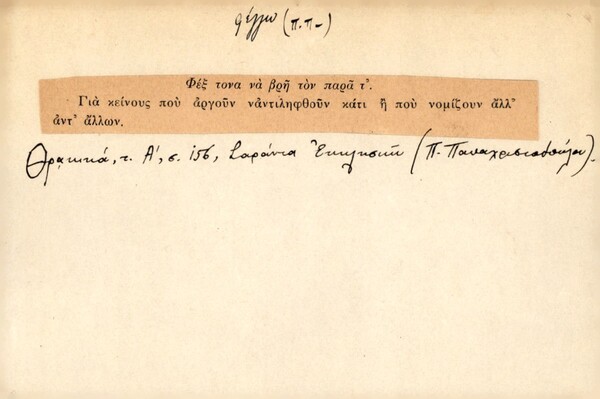 φέγγω (π.π-)
Φέξ τονα νὰ βρῇ τὸν παρᾶ τ'.
Γιὰ κείνους ποὺ ἀργοῦν νἀντιληφθοῦν κάτι ἢ ποὺ νομίζουν ἄλλ'
ἀντ' ἄλλων.
Θρακικά, τ. Α', σ. 156, Σαράντα Ἐκκλησιαί (Π. Παπαχριστοδούλου).